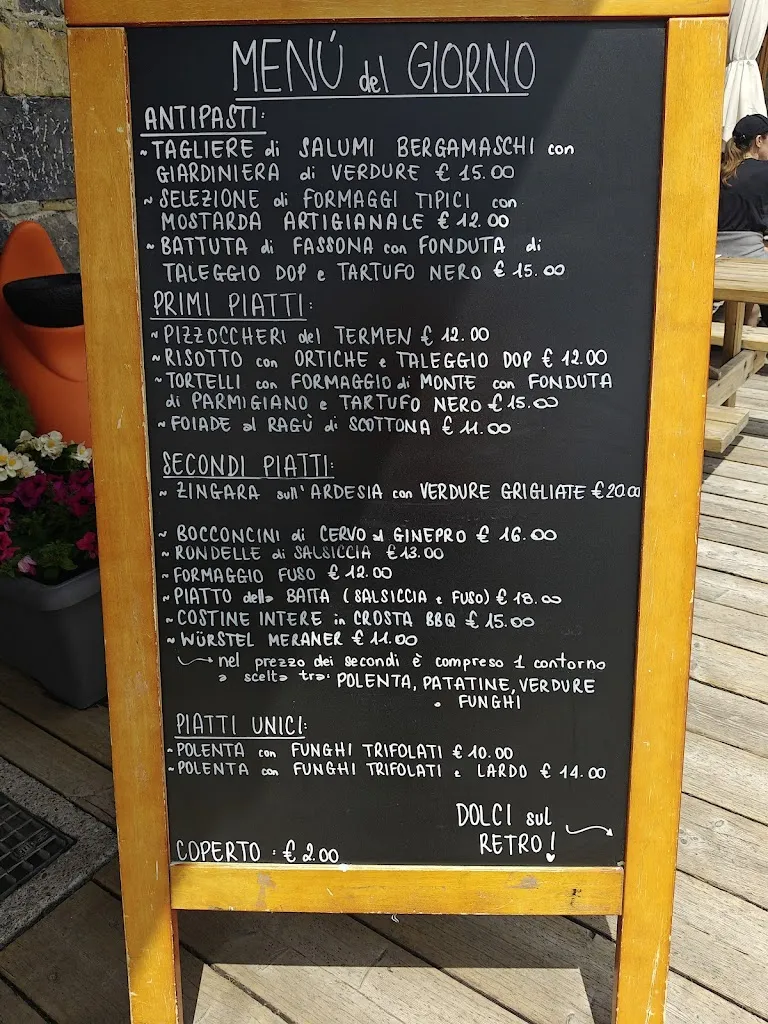 MENÚ del GIORNO
ANTIPASTI:
~ TAGLIERE di SALUMI BERGAMASCHI con
GIARDINIERA di VERDURE € 15.00
~ SELEZIONE di FORMAGGI TIPICI con
MOSTARDA ARTIGIANALE € 12.00
~ BATTUTA di FASSONA con FONDUTA di
TALEGGIO DOP e TARTUFO NERO € 15.00
PRIMI PIATTI:
~ PIZZOCCHERI del TERMEN € 12.00
~ RISOTTO con ORTICHE e TALEGGIO DOP € 12.00
~ TORTELLI con FORMAGGIO di MONTE con FONDUTA
di PARMIGIANO e TARTUFO NERO € 15.00
~ FOIADE al RAGÙ di SCOTTONA € 11.00
SECONDI PIATTI:
~ ZINGARA sull'ARDESIA con VERDURE GRIGLIATE € 20.00
~ BOCCONCINI di CERVO al GINEPRO € 16.00
~ RONDELLE di SALSICCIA € 13.00
~ FORMAGGIO FUSO € 12.00
~ PIATTO della BAITA (SALSICCIA e FUSO) € 18.00
~ COSTINE INTERE in CROSTA BBQ € 15.00
~ WÜRSTEL MERANER € 11.00
nel prezzo dei secondi è compreso 1 contorno
a scelta tra: POLENTA, PATATINE, VERDURE
o FUNGHI
PIATTI UNICI:
~ POLENTA con FUNGHI TRIFOLATI € 10.00
~ POLENTA con FUNGHI TRIFOLATI e LARDO € 14.00
DOLCI sul
RETRO!
COPERTO: € 2.00